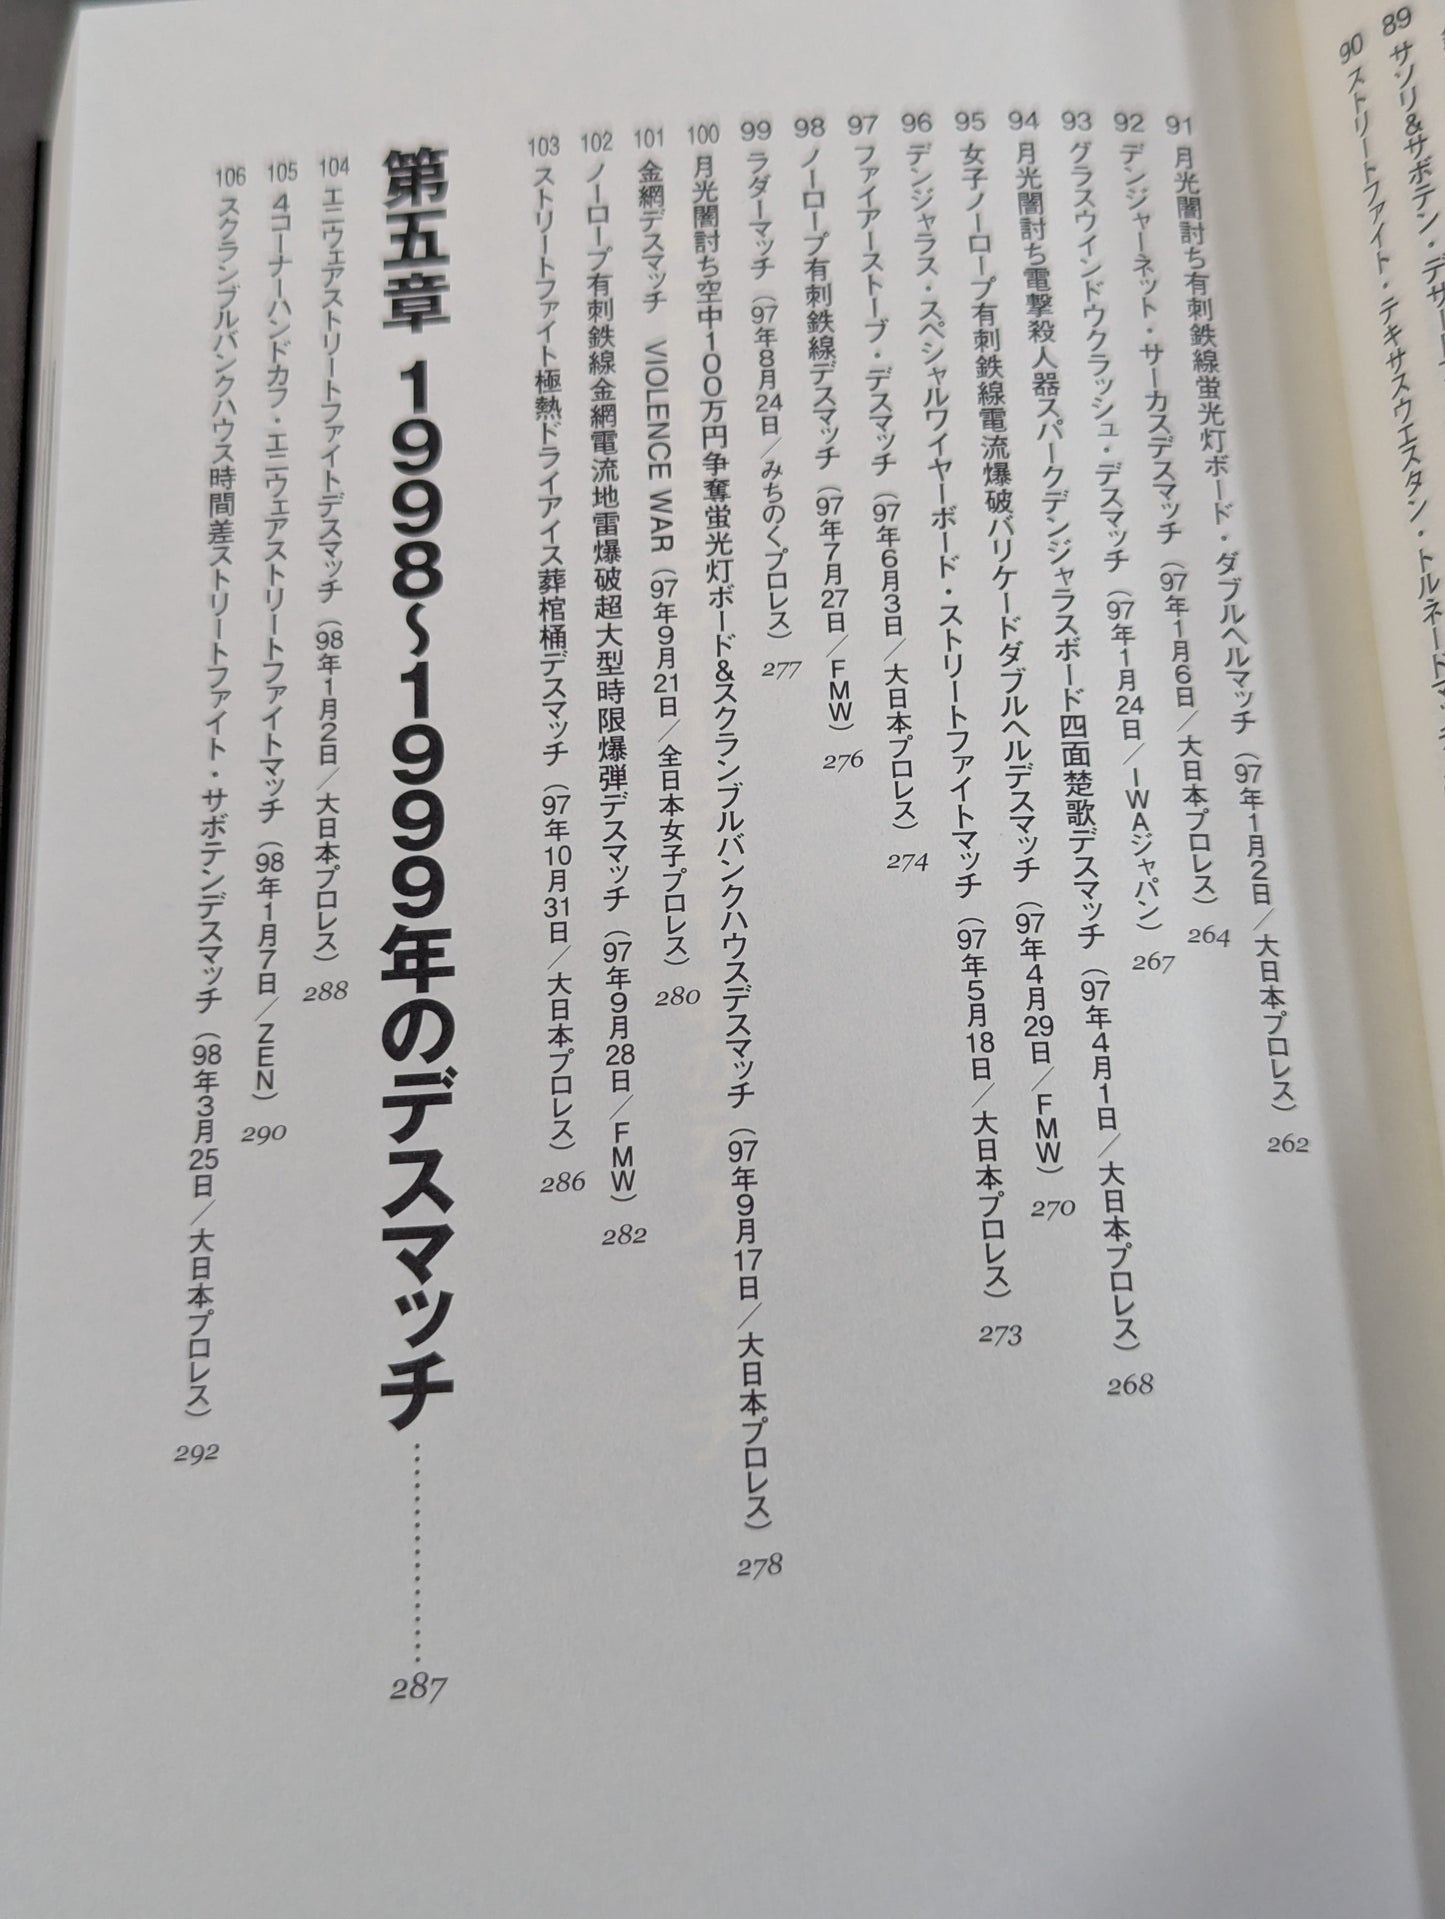 89 サソリ&サボテン・デザート
90 ストリートファイト・テキサスウエスタン・トルネードマッチ
91 月光闇討ち有刺鉄線蛍光灯ボード・ダブルヘルマッチ（97年1月2日／大日本プロレス） 262
92 デンジャーネット・サーカスデスマッチ（97年1月6日／大日本プロレス） 264
93 グラスウインドウクラッシュ・デスマッチ（97年1月24日／IWAジャパン） 267
94 月光闇討ち電撃殺人器スパークデンジャラスボード四面楚歌デスマッチ（97年4月1日／大日本プロレス） 268
95 女子ノーロープ有刺鉄線電流爆破バリケードダブルヘルデスマッチ（97年4月29日／FMW） 270
96 デンジャラス・スペシャルワイヤーボード・ストリートファイトマッチ（97年5月18日／大日本プロレス） 273
97 ファイアーストーブ・デスマッチ（97年6月3日／大日本プロレス） 274
98 ノーロープ有刺鉄線デスマッチ（97年7月27日／FMW） 276
99 ラダーマッチ（97年8月24日／みちのくプロレス） 277
100 月光闇討ち空中100万円争奪蛍光灯ボード&スクランブルバンクハウスデスマッチ（97年9月17日／大日本プロレス） 278
101 金網デスマッチ　VIOLENCE WAR（97年9月21日／全日本女子プロレス） 280
102 ノーロープ有刺鉄線金網電流地雷爆破超大型時限爆弾デスマッチ（97年9月28日／FMW） 282
103 ストリートファイト極熱ドライアイス葬棺桶デスマッチ（97年10月31日／大日本プロレス） 286
第五章 1998〜1999年のデスマッチ………………287
104 エニウェアストリートファイトデスマッチ（98年1月2日／大日本プロレス） 288
105 4コーナーハンドカフ・エニウェアストリートファイトマッチ（98年1月7日／ZEN） 290
106 スクランブルバンクハウス時間差ストリートファイト・サボテンデスマッチ（98年3月25日／大日本プロレス） 292